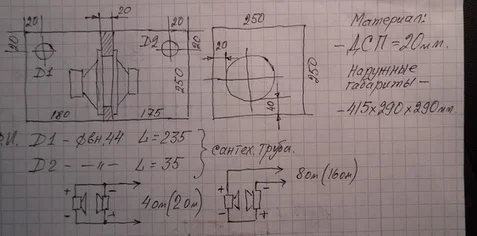 20
20
20
20
20
D1
D2
250
180
175
250
20
250
40
Материал:
- ДСП = 20мм.
Наружные
габариты -
- 415х290х290мм
D1 - ф вн. 44 L = 235
D2 - -"- L = 35
сантех. труба.
+ -
+ -
4 ом (2 ом)
+ -
- +
8 ом (16 ом)